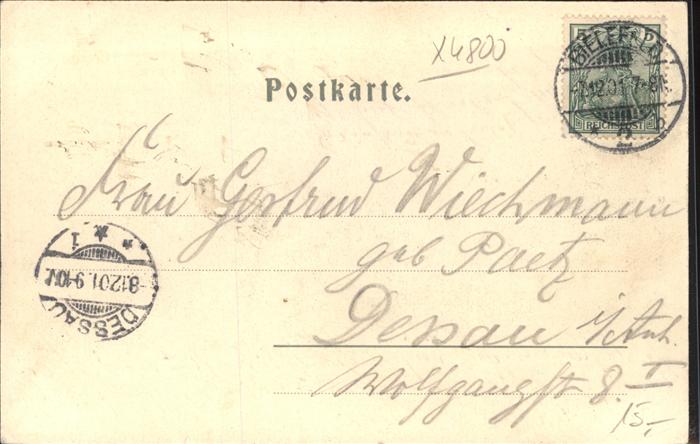 X4800
5 PF
BIELEFELD
7.12.01. 7-8N.
REICHSPOST
Postkarte.
Frau Gertrud Wiechmann
geb Paetz
Dessau i/Anh.
Wolfgangstr 8. I
1
8.12.01. 9-10V.
DESSAU
15,-